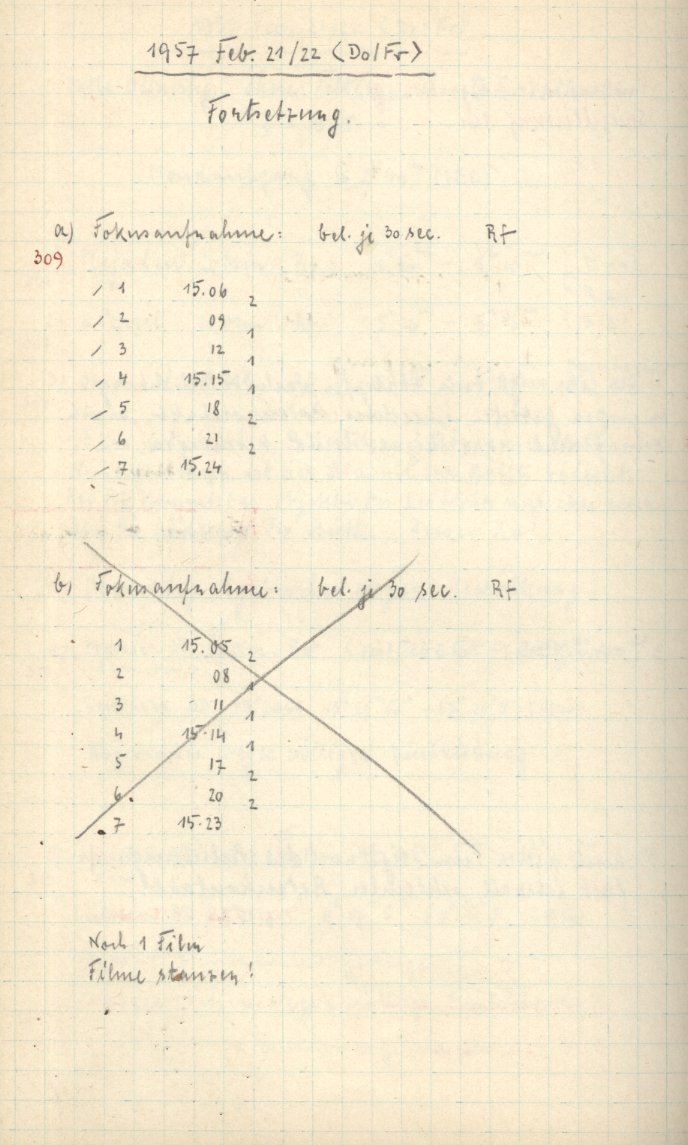 1957 Feb. 21/22 <Do/Fr>
Fortsetzung.
a) Fokusaufnahme: bel. je 30 sec. Rf
309
/ 1 15.06
2
/ 2 09
1
/ 3 12
1
/ 4 15.15
1
/ 5 18
2
/ 6 21
2
/ 7 15.24
b) Fokusaufnahme: bel. je 30 sec. Rf
1 15.05
2
2 08
1
3 11
1
4 15.14
1
5 17
2
6 20
2
7 15.23
Noch 1 Film
Filme stanzen!